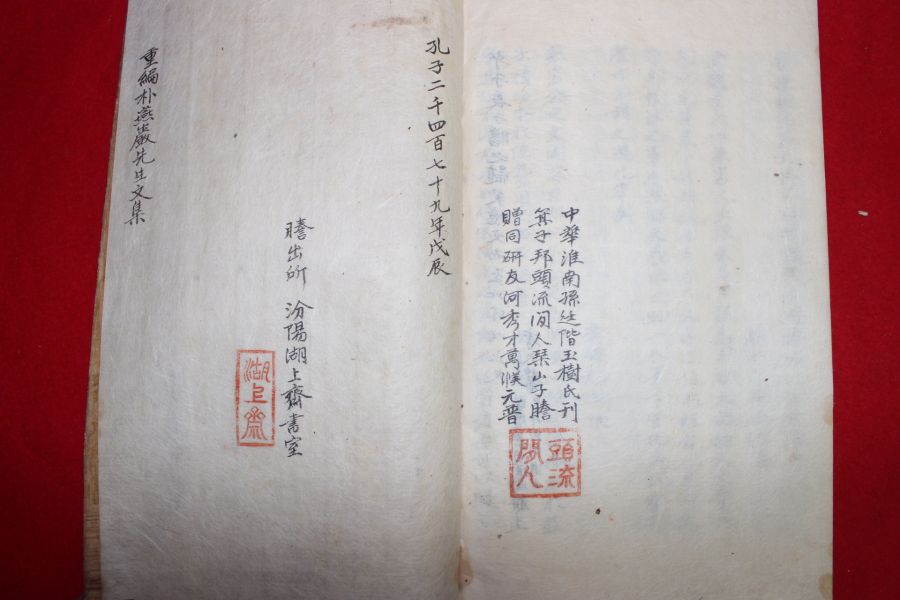 中華淮南孫廷階玉樹氏刊
箕子邦頭流閒人琹山子謄
贈同研友河秀才萬濮元普
頭流
閒人
孔子二千四百七十九年戊辰
謄出所 汾陽湖上齋書室
湖上齋
重編朴燕巖先生文集